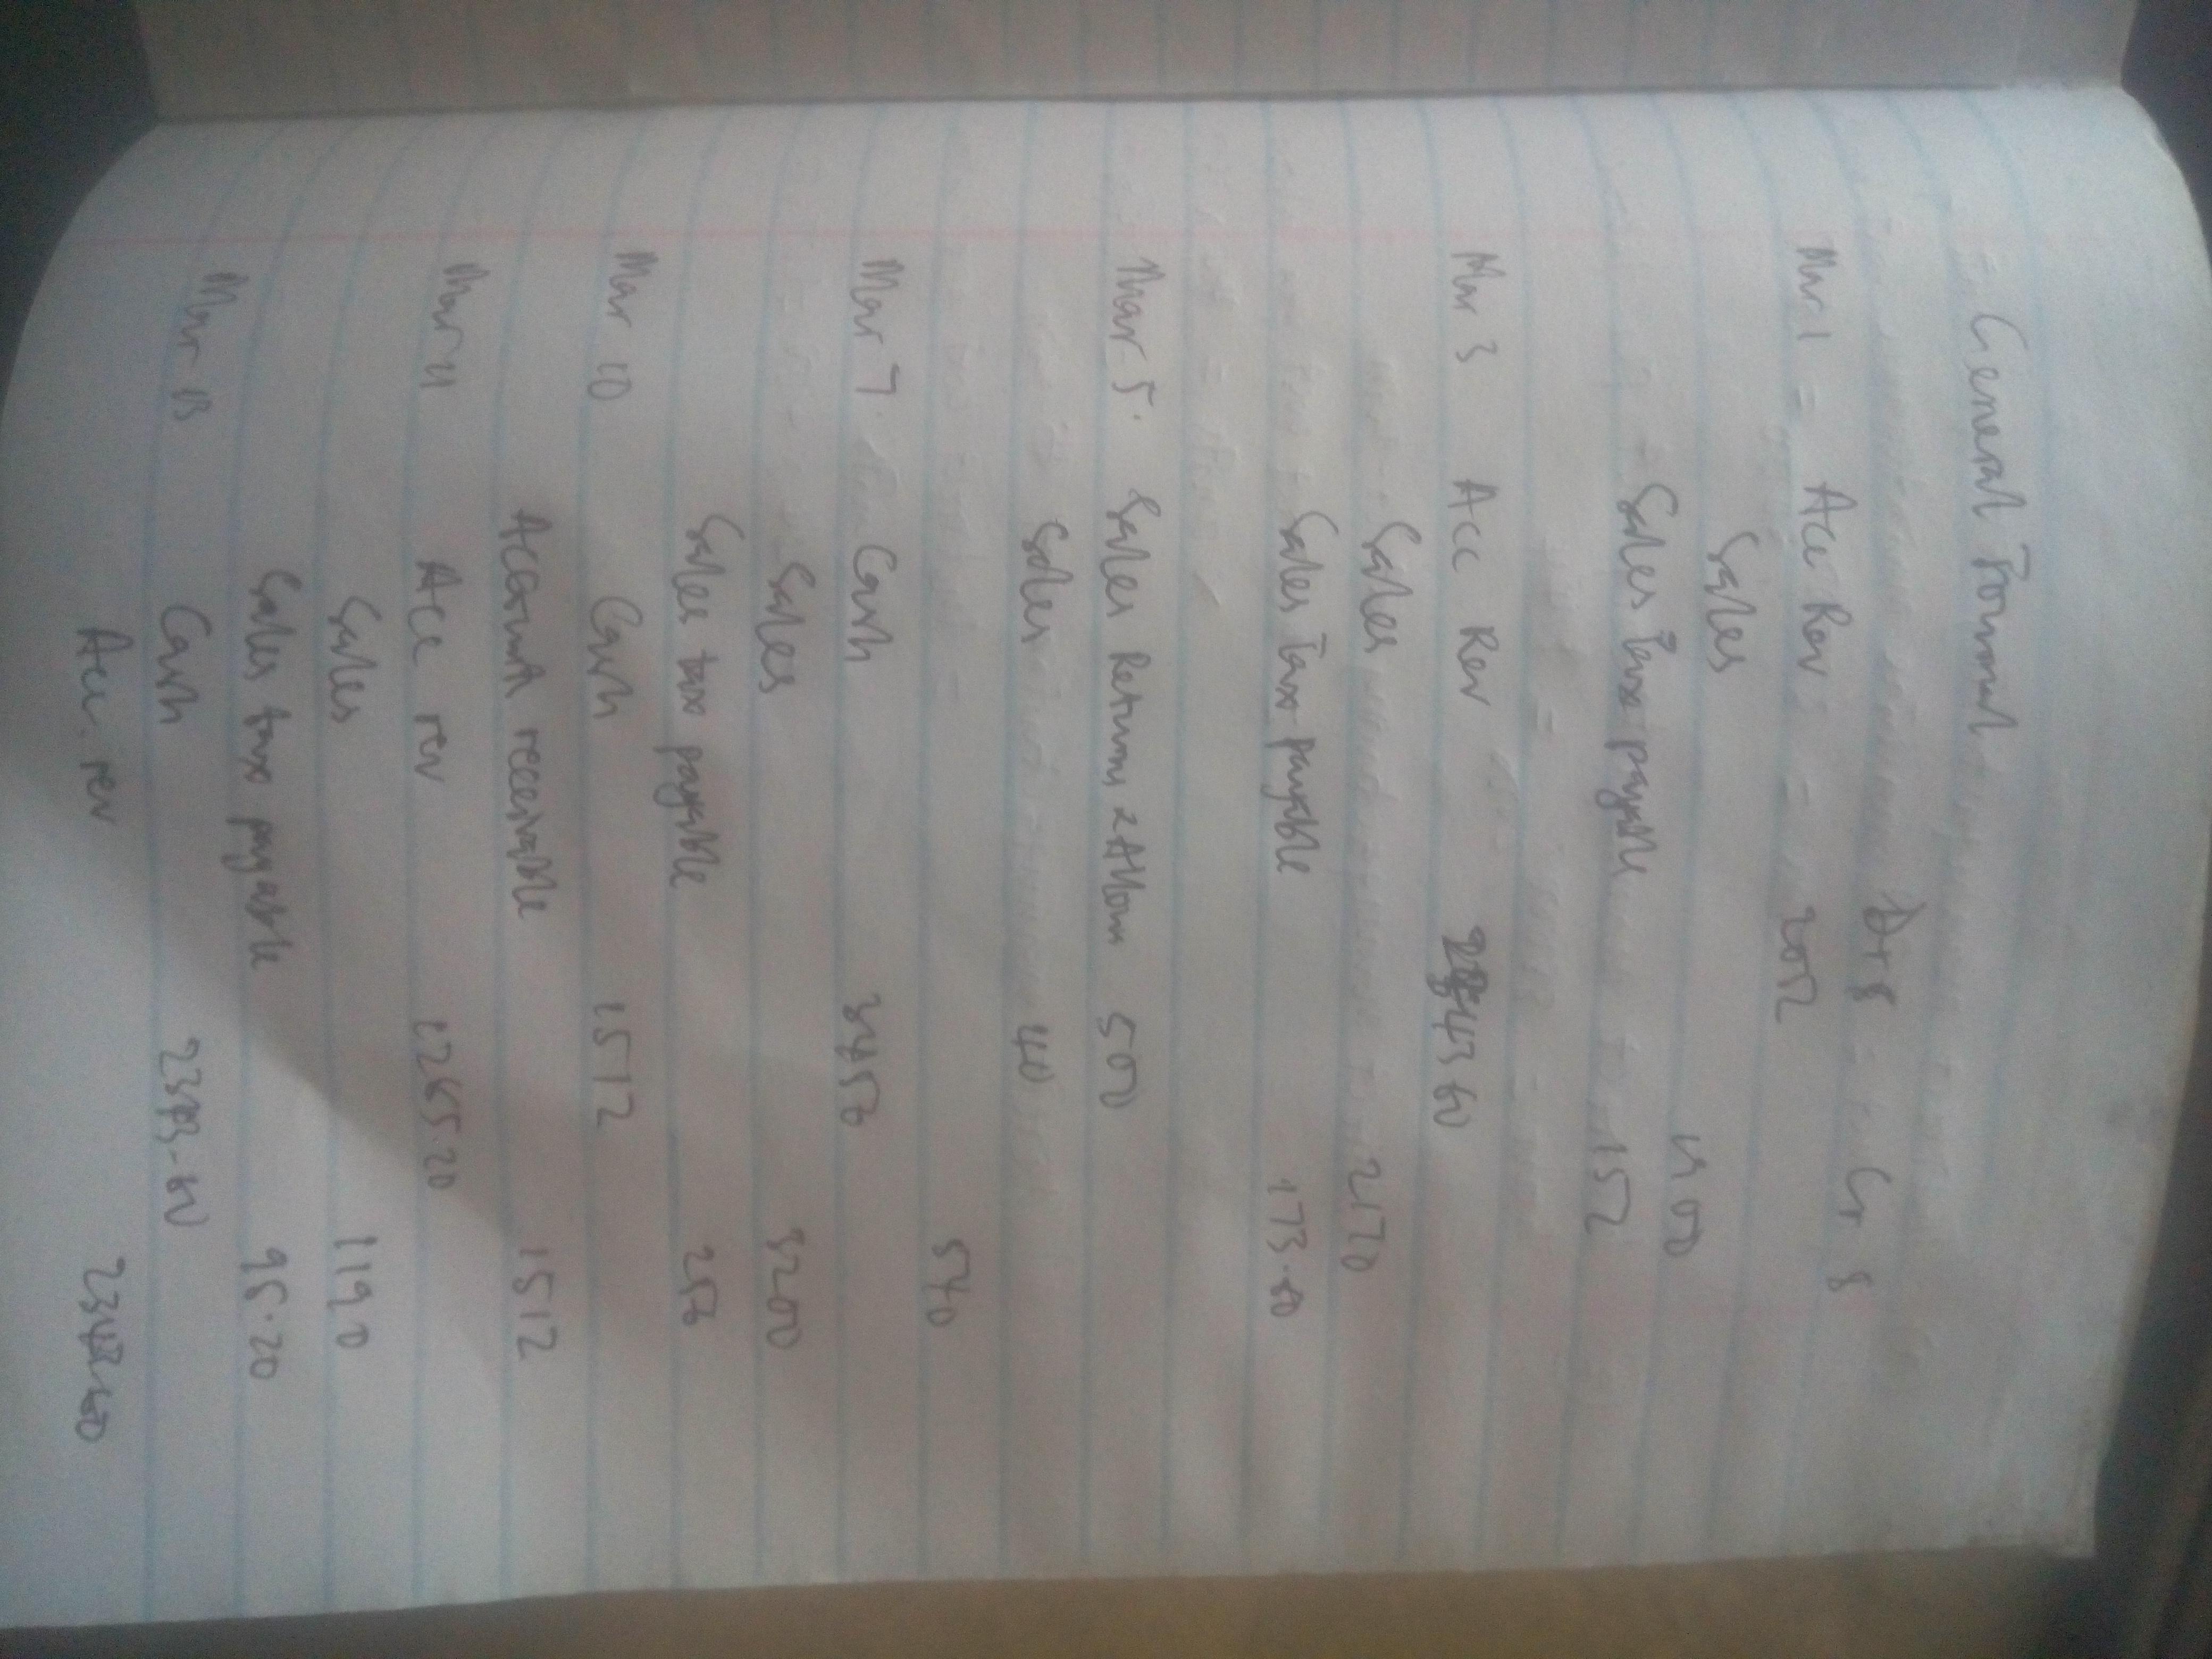 General Journal
Dr $ Cr $
Mar 1 = Acc Rev = 2052
Sales 1900
Sales Tax payable 152
Mar 3 Acc Rev 43 60
Sales 2170
Sales Tax payable 173.60
Mar 5. Sales Return & Allow 500
Sales 40
540
Mar 7. Cash 3456
Sales 3200
Sales tax payable 256
Mar 10 Cash 1512
Account receivable 1512
Mar 11 Acc rev 1285.20
Sales 1190
Sales tax payable 95.20
Mar 13 Cash
Acc. rev